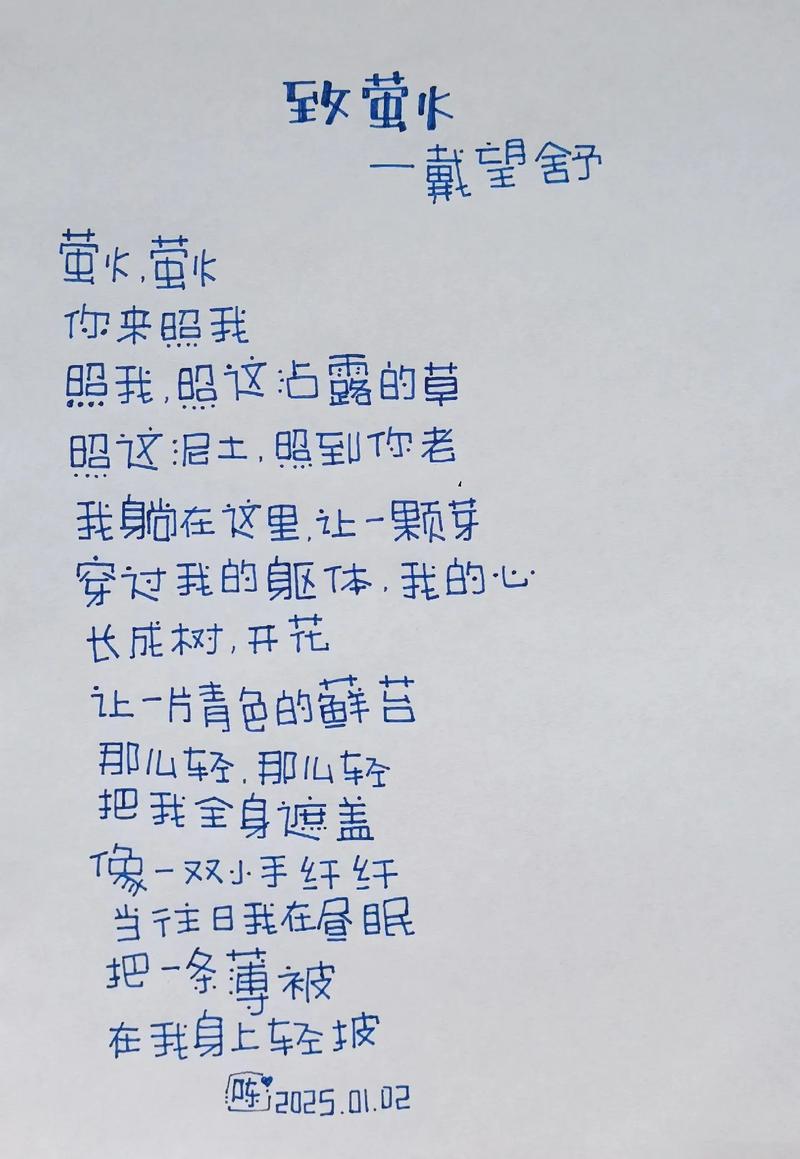 致萤火
—戴望舒
萤火,萤火
你来照我
照我,照这沾露的草
照这泥土,照到你老
我躺在这里,让一颗芽
穿过我的躯体,我的心
长成树,开花
让一片青色的藓苔
那么轻,那么轻
把我全身遮盖
像一双小手纤纤
当往日我在昼眠
把一条薄被
在我身上轻披
陈 2025.01.02